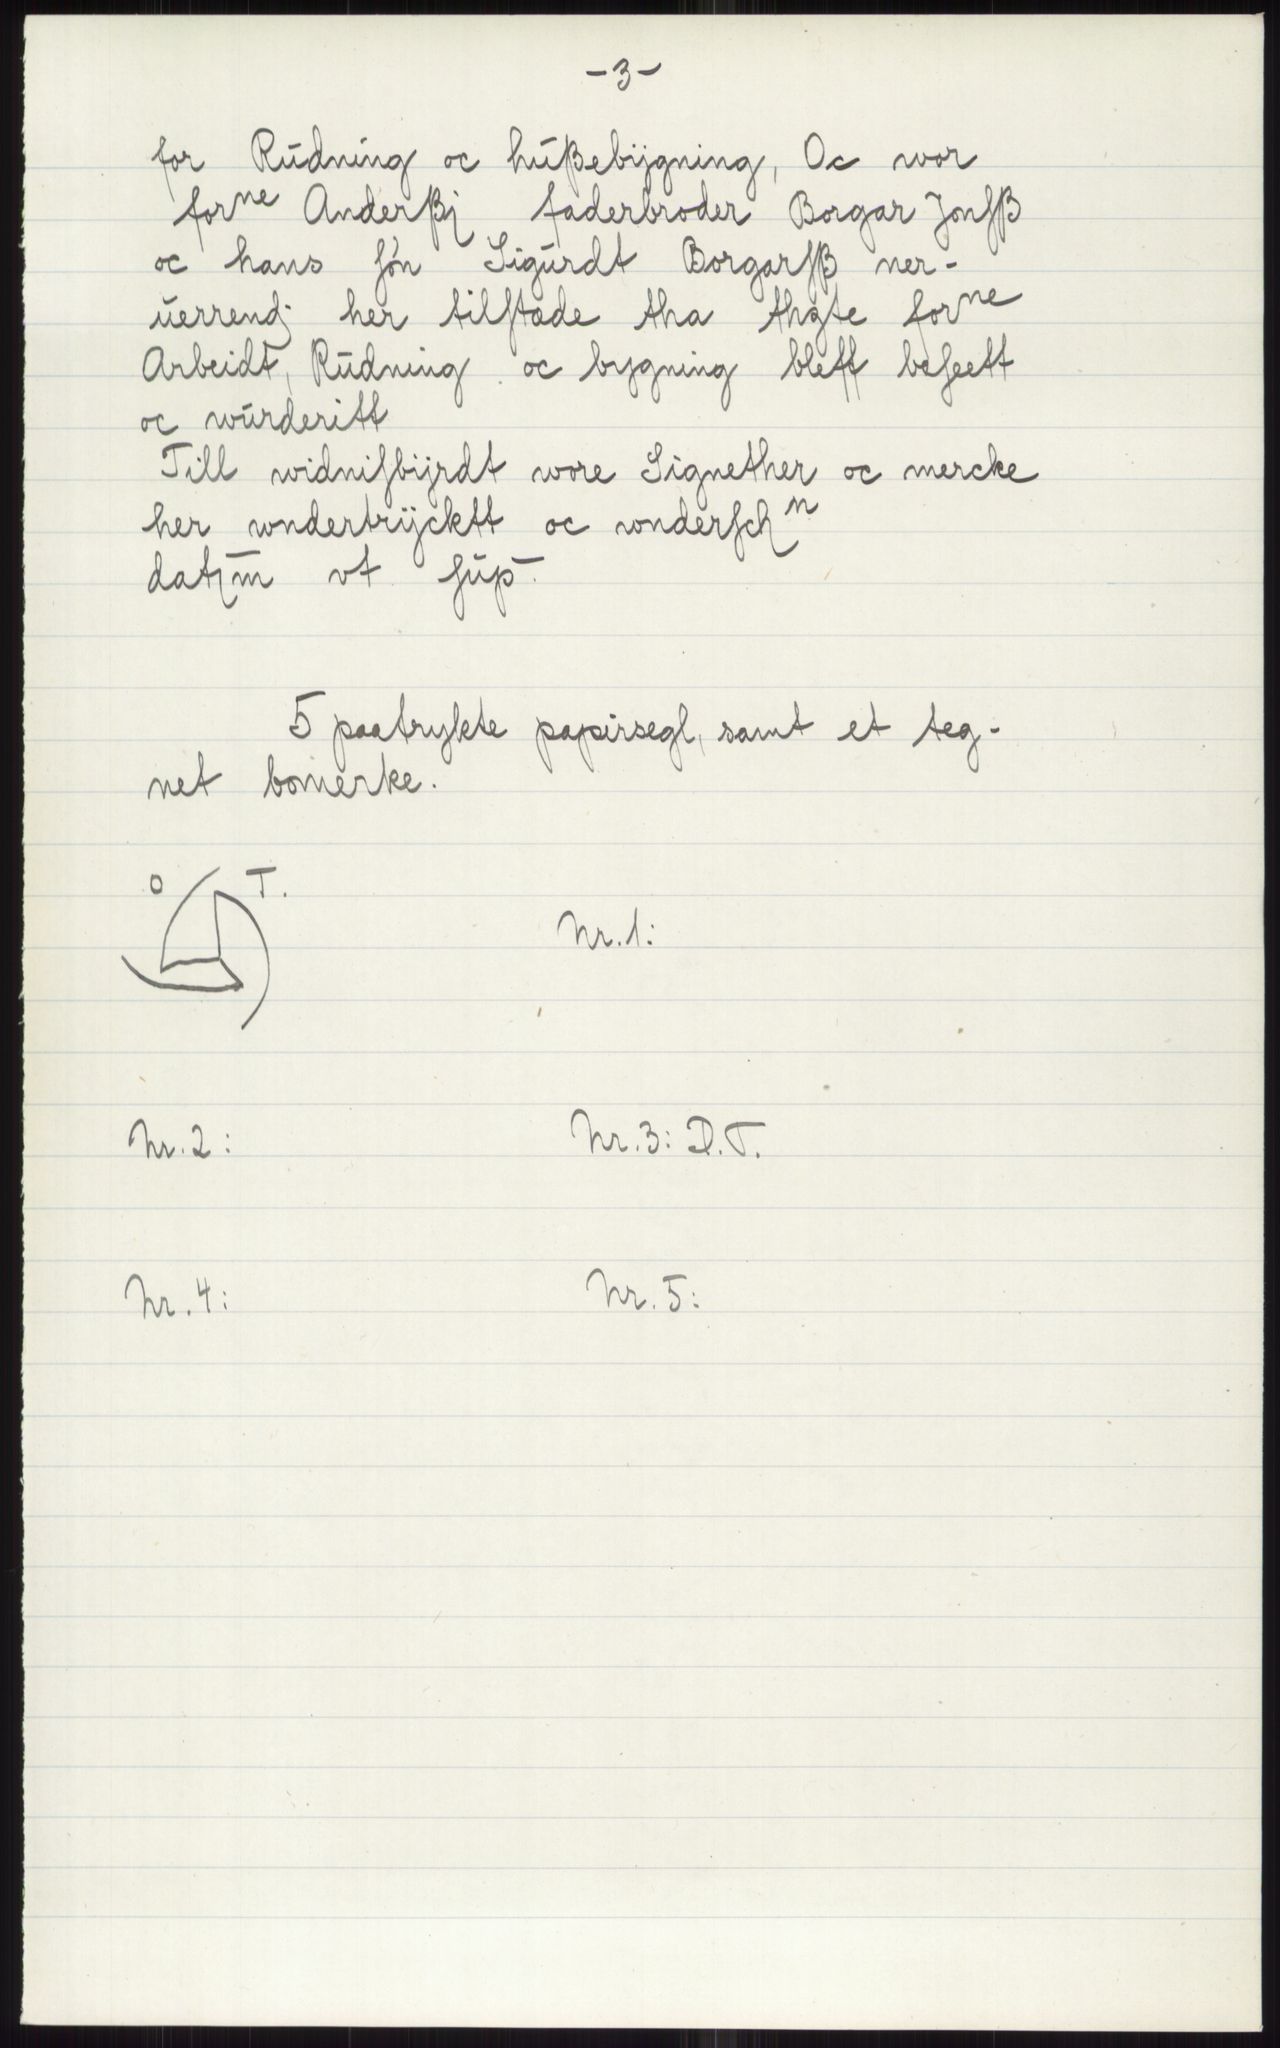 -3-
for Rŭdning oc hŭßebÿgning, Oc wor
forne Anderßj faderbroder Borgar Jonsß
oc hans søn Sigŭrdt Borgarsß ner-
ŭerrendj her tilstæde tha thæte forne
Arbeidt, Rŭdning oc bygning bleff beseett
oc wŭrderitt
Till widnisbÿrdt wore Signether oc mercke
her wndertrÿcktt oc wnderschn
datŭm vt sŭp.
5 paatrykte papirsegl, samt et teg-
net bomerke.
O T.
Nr. 1:
Nr. 2: Nr. 3: D.T.
Nr. 4: Nr. 5: